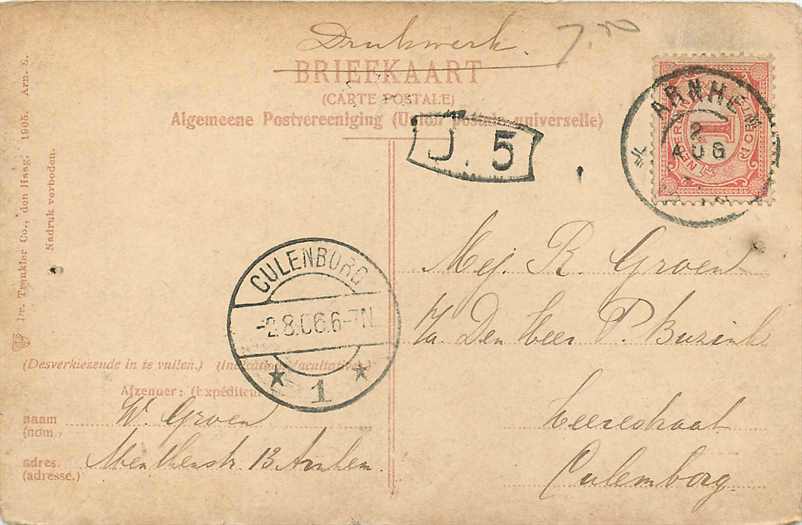 Drukwerk. 7.00
BRIEFKAART
(CARTE POSTALE)
Algemeene Postvereeniging (Union postale universelle)
ARNHEM
2 AUG
1
J. 5
Dr. Trenkler Co., den Haag. 1905. Arn. 2.
Nadruk verboden.
CULENBORG
-2.8.06.6-7N
1
Mej. R. Groen
p/a Den Heer P. Buzink
Heerestraat
Culemborg.
(Desverkiezende in te vullen.) (Indications facultatives.)
Afzender: (Expéditeur)
naam W. Groen
(nom.)
adres. 13 Arnhem.
(adresse.)